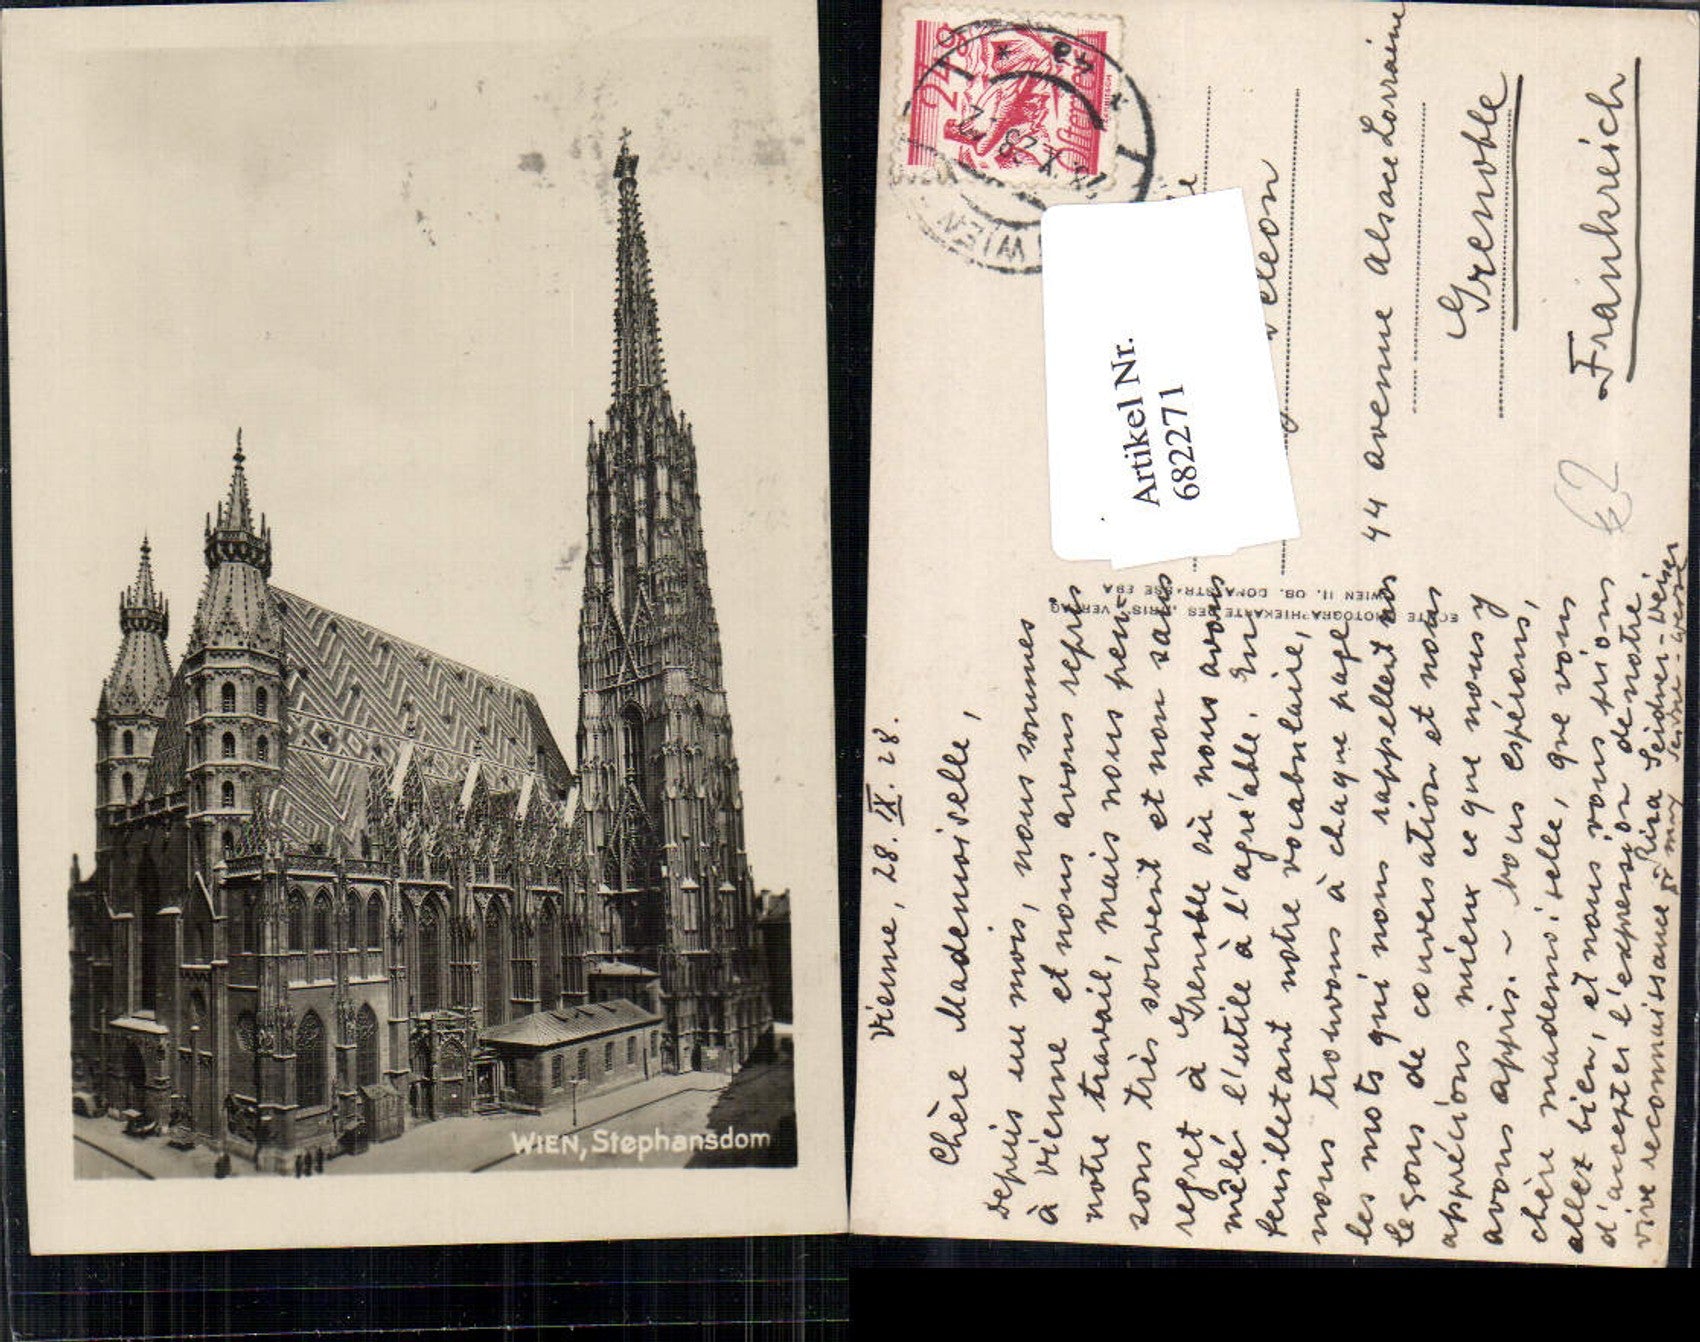 WIEN, Stephansdom
Vienne, 28. IX. 28.
Chère Mademoiselle,
Depuis un mois, nous sommes
à Vienne et nous avons repris
notre travail, mais nous pen-
sons très souvent et non sans
regret à Grenoble où nous avons
mêlé l'utile à l'agréable. En
feuilletant notre vocabulaire,
nous trouvons à chaque page
les mots qui nous rappellent nos
leçons de conversation et nous
apprécions mieux ce que nous y
avons appris. – Nous espérons,
chère mademoiselle, que vous
allez bien, et nous vous prions
d'accepter l'expression de notre
vive reconnaissance
Lisa Leidner-Weiser
44 avenue Alsace Lorraine
Grenoble
Frankreich
62
24 g
WIEN
Artikel Nr.
682271
ECHTE PHOTOGRAPHIEKARTE DES "IRIS" VERLAG
WIEN II. OB. DONAUSTRASSE 59A